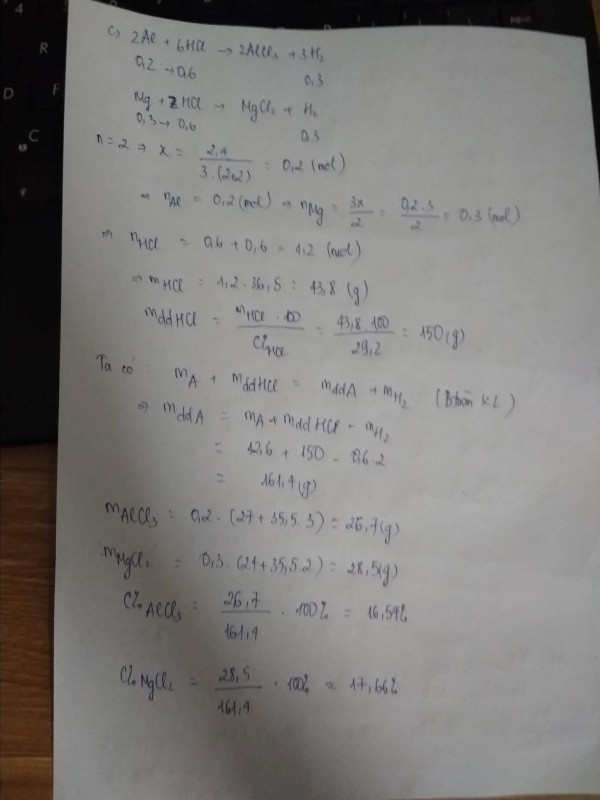 c) 2Al + 6HCl → 2AlCl₃ + 3H₂
0,2 → 0,6 0,3
Mg + 2HCl → MgCl₂ + H₂
0,3 → 0,6 0,3
n = 2 ⇒ x = 2,4 / 3.(2+2) = 0,2 (mol)
⇒ nAl = 0,2 (mol) ⇒ nMg = 3x/2 = 0,2.3/2 = 0,3 (mol)
⇒ nHCl = 0,6 + 0,6 = 1,2 (mol)
⇒ mHCl = 1,2 . 36,5 = 43,8 (g)
mddHCl = mHCl . 100 / C%HCl = 43,8 . 100 / 29,2 = 150 (g)
Ta có: mA + mddHCl = mddA + mH₂ (Btoàn KL)
⇒ mddA = mA + mddHCl - mH₂
= 12,6 + 150 - 0,6.2
= 161,4 (g)
mAlCl₃ = 0,2 . (27 + 35,5 . 3) = 26,7 (g)
mMgCl₂ = 0,3 . (24 + 35,5.2) = 28,5 (g)
C% AlCl₃ = 26,7 / 161,4 . 100% = 16,54%
C% MgCl₂ = 28,5 / 161,4 . 100% ≈ 17,66%